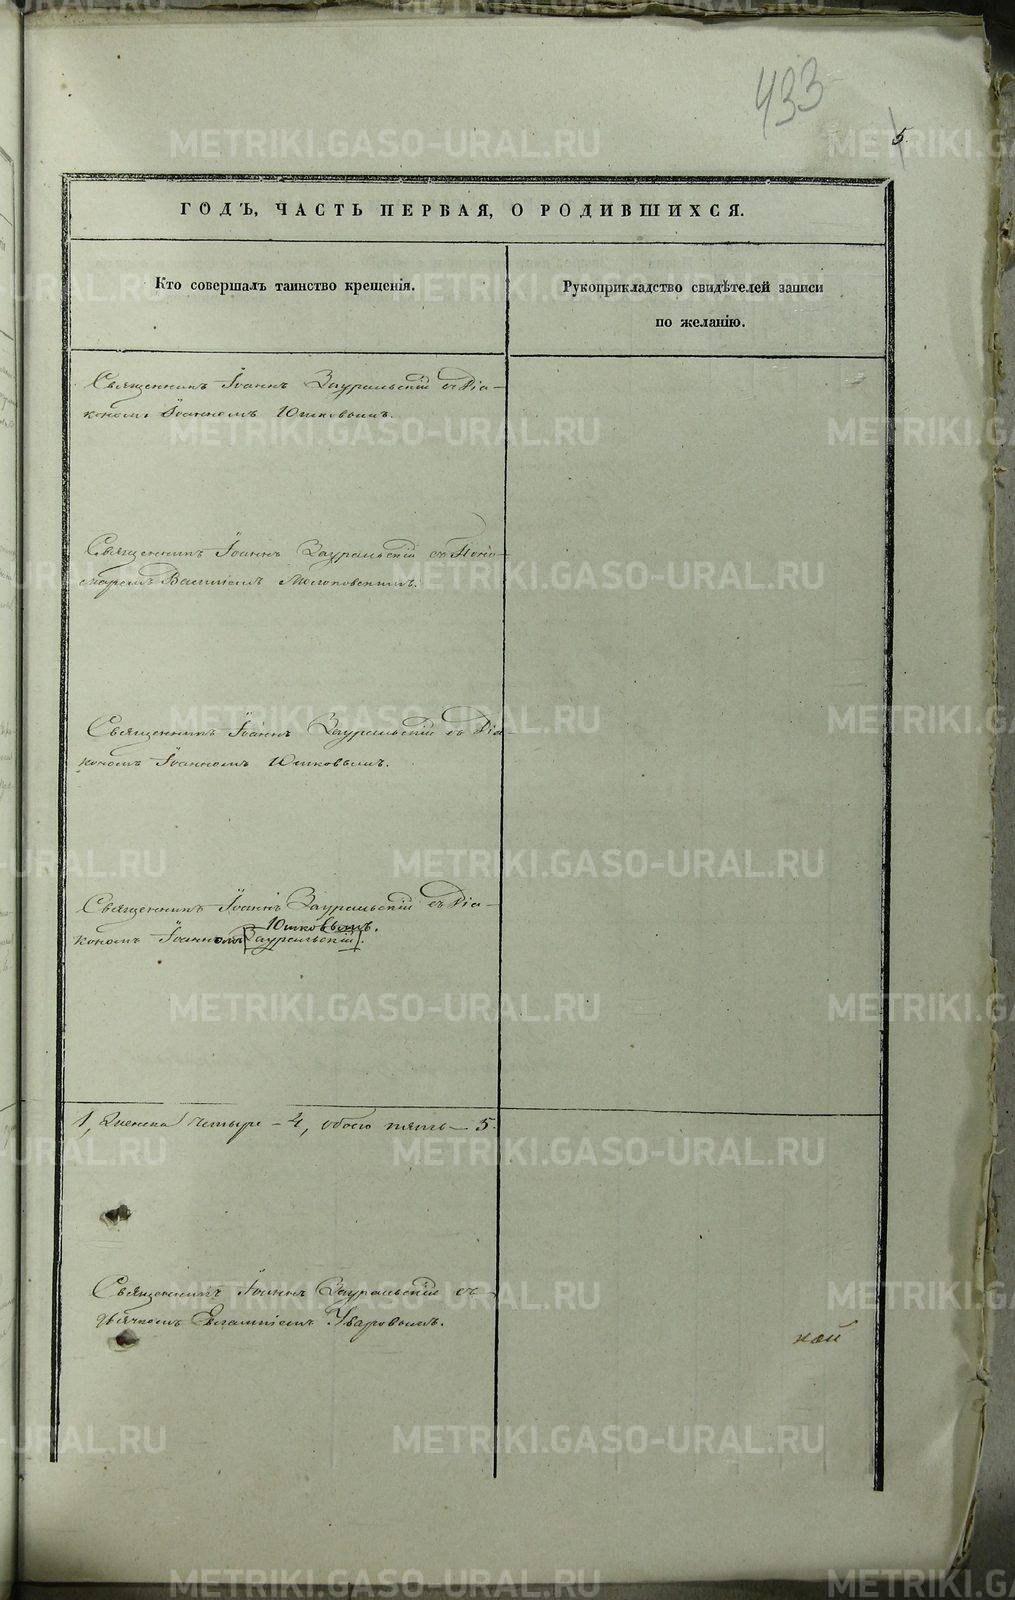 433
5
ГОДЪ, ЧАСТЬ ПЕРВАЯ, О РОДИВШИХСЯ.
Кто совершалъ таинство крещенія.
Рукоприкладство свидѣтелей записи
по желанію.
Священникъ Іоаннъ Зауральскій съ Діа-
кономъ Іоанномъ Юшковымъ.
Священникъ Іоаннъ Зауральскій съ Поно-
маремъ Василіемъ
Священникъ Іоаннъ Зауральскій съ Діа
кономъ Іоанномъ Юшковымъ.
Священникъ Іоаннъ Зауральскій съ Діа-
Юшковымъ.
кономъ Іоанномъ [Зауральскій].
1, Женска четыре – 4, обоего пять – 5.
Священникъ Іоаннъ Зауральскій съ
дьячкомъ Евлампіемъ Уваровымъ.
ной
METRIKI.GASO-URAL.RU